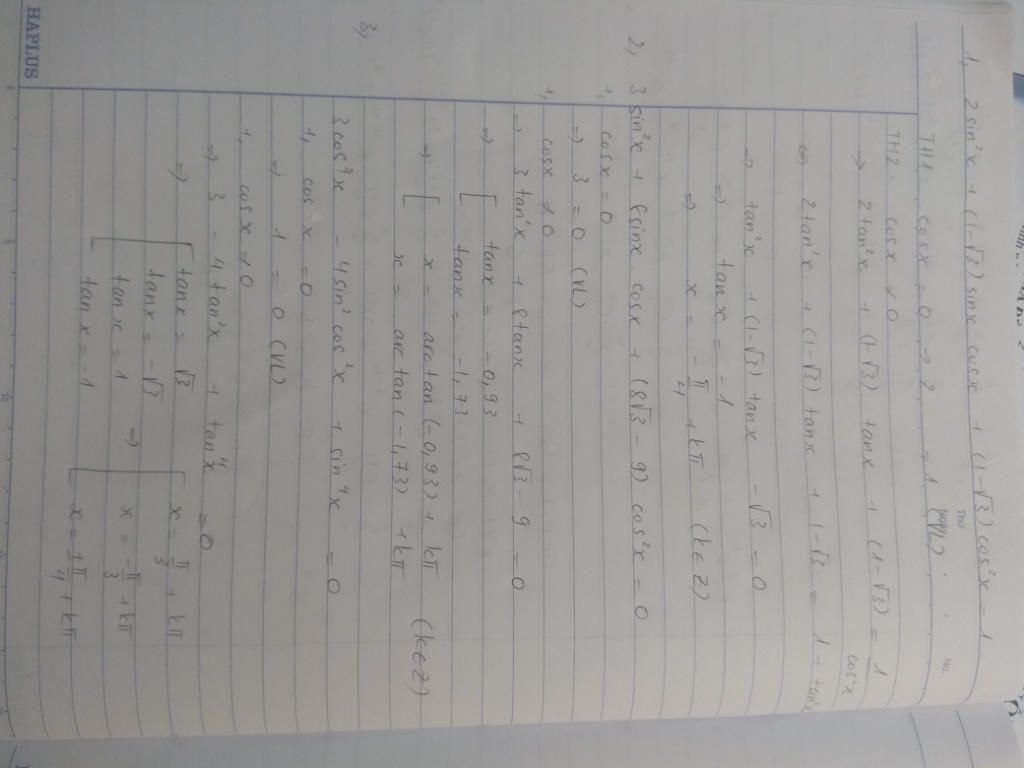 1, 2sin²x + (1-√3) sinx cosx + (1-√3) cos²x = 1
No.
TH1. cosx = 0 → 2 = 1 (VL).
TH2. cosx ≠ 0
→ 2tan²x + (1-√3). tanx + (1-√3) = 1/cos²x
↔ 2tan²x + (1-√3) tanx + 1-√3 = 1 + tan²x
→ tan²x + (1-√3) tanx - √3 = 0
⇒ tanx = -1
⇒ x = -π/4 + kπ (k∈Z)
2, 3 sin²x + 8sinx. cosx + (8√3 - 9) cos²x = 0
+, cosx = 0
⇒ 3 = 0 (VL)
+, cosx ≠ 0
→ 3 tan²x + 8tanx + 8√3 - 9 = 0
⇒ [ tanx = -0,93
tanx = -1,73
⇒ [ x = arctan(-0,93) + kπ (k∈Z)
x = arctan(-1,73) + kπ
3, 3cos⁴x - 4sin²cos²x + sin⁴x = 0
+, cosx = 0
⇒ 1 = 0 (VL)
+, cos²x ≠ 0
⇒ 3 - 4tan²x + tan⁴x = 0
⇒ [ tanx = √3 [ x = π/3 + kπ
tanx = -√3 ⇒ x = -π/3 + kπ
tanx = 1 x = ±π/4 + kπ
tanx = -1
HAPLUS